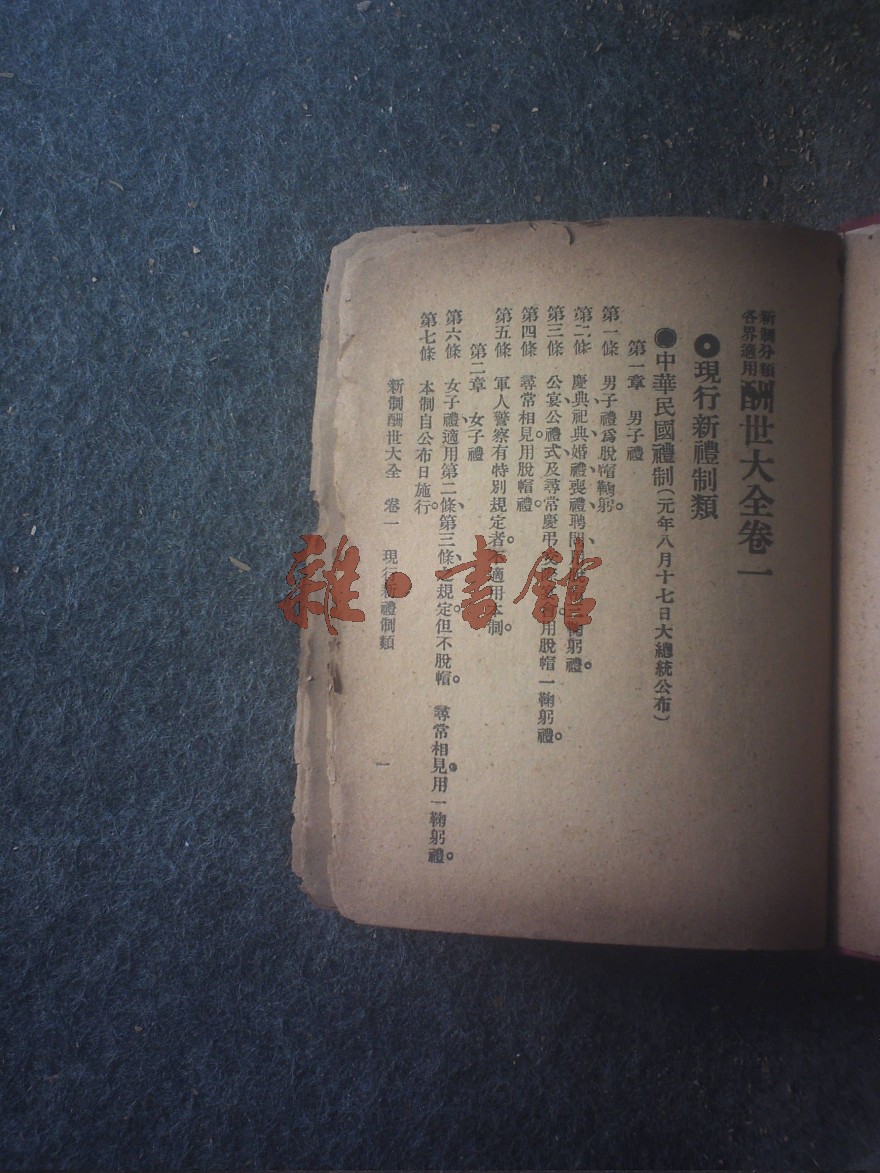 新制分類
各界適用
酬世大全卷一
現行新禮制類
中華民國禮制(元年八月十七日大總統公布)
第一章 男子禮
第一條 男子禮爲脫帽鞠躬。
第二條 慶典祀典婚禮喪禮聘問用鞠躬禮。
第三條 公宴公禮式及尋常慶弔用脫帽一鞠躬禮。
第四條 尋常相見用脫帽禮。
第五條 軍人警察有特別規定者適用本制。
第二章 女子禮
第六條 女子禮適用第二條、第三條規定但不脫帽。尋常相見用一鞠躬禮。
第七條 本制自公布日施行。
新制酬世大全 卷一 現行新禮制類 一
雜·書館